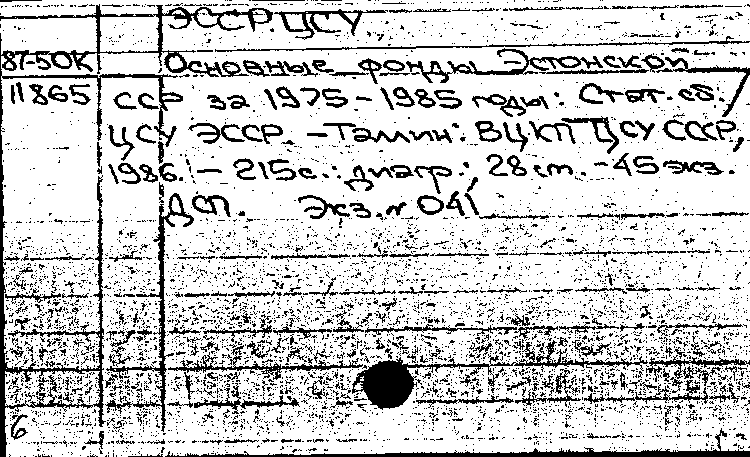 ЭССР. ЦСУ
87-50К Основные фонды Эстонской
11865 ССР за 1975-1985 годы: Стат. сб./
ЦСУ ЭССР. - Таллин: ВЦКП ЦСУ СССР,
1986. - 215 с.: диагр.; 28 см. - 45 экз.
ДСП. Экз. № 041
6